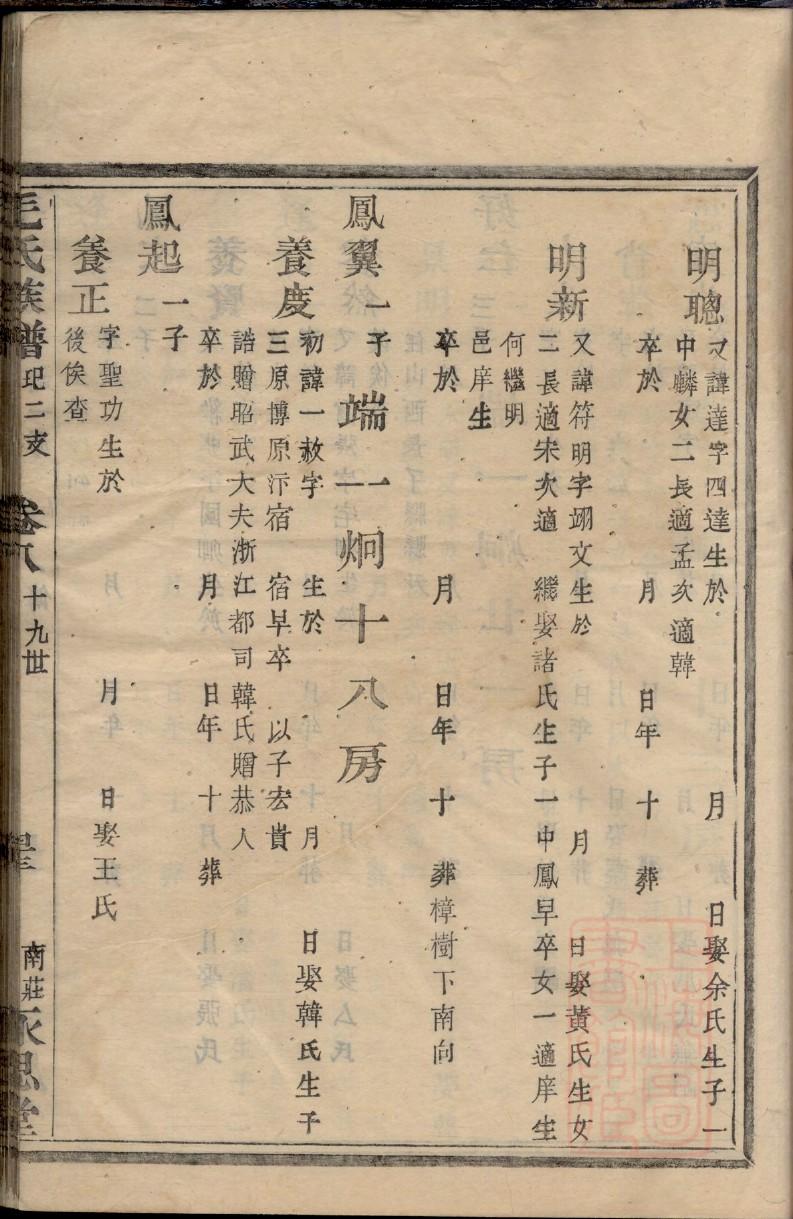 明聰又諱達字四達生於 月 日娶余氏生子一
中麟女二長適孟次適韓
卒於 月 日年 十 葬
明新又諱符明字翊文生於 月 日娶黃氏生女
二長適宋次適 繼娶諸氏生子一中鳳早卒女一適庠生
何繼明
邑庠生
卒於 月 日年 十 葬樟樹下南向
鳳翼一子 端一一炯十八房
養度初諱一赦字 生於 月 日娶韓氏生子
三原博原泝宿 宿早卒 以子宏貴
誥贈昭武大夫浙江都司韓氏贈恭人
卒於 月 日年 十月 葬
鳳起一子
養正字聖功生於 月年 日娶王氏
後俟查
毛氏族譜 玘二支 卷八 十九世 南莊永思堂